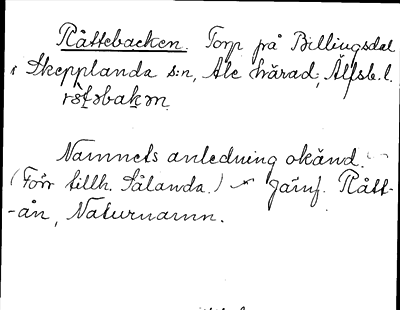 Råttebacken. Torp på Billingsdal
i Skepplanda s:n, Ale härad, Älfsb. l.
Namnets anledning okänd.
(Förr tillh. Sålanda.) Jämf. Rått-
-ån, Naturnamn.